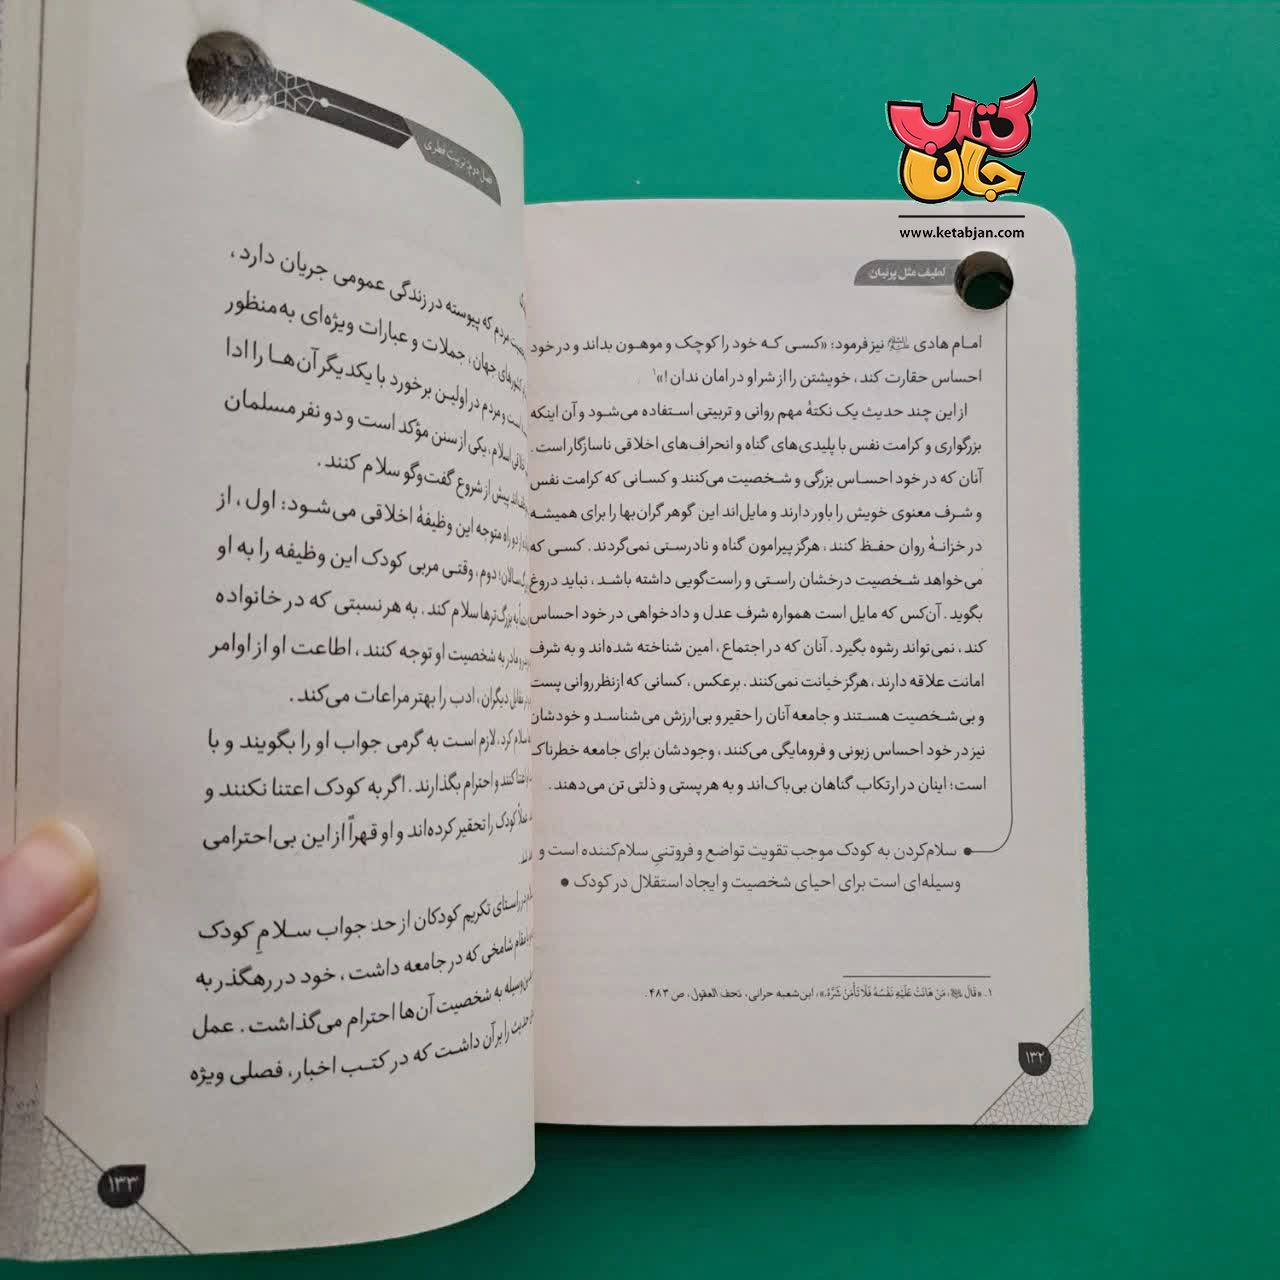 کتاب
جان
www.ketabjan.com
لطیف مثل پرنیان
امام هادی علیه‌السلام نیز فرمود: «کسی که خود را کوچک و موهون بداند و در خود
احساس حقارت کند، خویشتن را از شر او در امان ندان!»۱
از این چند حدیث یک نکتهٔ مهم روانی و تربیتی استفاده می‌شود و آن اینکه
بزرگواری و کرامت نفس با پلیدی‌های گناه و انحراف‌های اخلاقی ناسازگار است.
آنان که در خود احساس بزرگی و شخصیت می‌کنند و کسانی که کرامت نفس
و شرف معنوی خویش را باور دارند و مایل‌اند این گوهر گران‌بها را برای همیشه
در خزانهٔ روان حفظ کنند، هرگز پیرامون گناه و نادرستی نمی‌گردند. کسی که
می‌خواهد شخصیت درخشان راستی و راست‌گویی داشته باشد، نباید دروغ
بگوید. آن‌کس که مایل است همواره شرف عدل و دادخواهی در خود احساس
کند، نمی‌تواند رشوه بگیرد. آنان که در اجتماع، امین شناخته شده‌اند و به شرف
امانت علاقه دارند، هرگز خیانت نمی‌کنند. برعکس، کسانی که ازنظر روانی پست
و بی‌شخصیت هستند و جامعه آنان را حقیر و بی‌ارزش می‌شناسد و خودشان
نیز در خود احساس زبونی و فرومایگی می‌کنند، وجودشان برای جامعه خطرناک
است؛ اینان در ارتکاب گناهان بی‌باک‌اند و به هر پستی و ذلتی تن می‌دهند.
● سلام‌کردن به کودک موجب تقویت تواضع و فروتنیِ سلام‌کننده است و
وسیله‌ای است برای احیای شخصیت و ایجاد استقلال در کودک ●
۱. «قَالَ ﷺ: مَنْ هَانَتْ عَلَيْهِ نَفْسُهُ فَلَا تَأْمَنْ شَرَّهُ.»، ابن‌شعبه حرانی، تحف العقول، ص ۴۸۳.
۱۳۲
فصل دوم: تربیت فطری
مردم که پیوسته در زندگی عمومی جریان دارد،
کشورهای جهان، جملات و عبارات ویژه‌ای به‌منظور
است و مردم در اولین برخورد با یکدیگر آن‌ها را ادا
اسلام، یکی از سنن مؤکد است و دو نفر مسلمان
پیش از شروع گفت‌وگو سلام کنند.
از دو راه متوجه این وظیفهٔ اخلاقی می‌شود: اول، از
دوم، وقتی مربی کودک این وظیفه را به او
به بزرگ‌ترها سلام کند. به هر نسبتی که در خانواده
به شخصیت او توجه کنند، اطاعت او از اوامر
مقابل دیگران، ادب را بهتر مراعات می‌کند.
سلام کرد، لازم است به گرمی جواب او را بگویند و با
اعتنا کنند و احترام بگذارند. اگر به کودک اعتنا نکنند و
کودک را تحقیر کرده‌اند و او قهراً از این بی‌احترامی
در راستای تکریم کودکان از حد جواب سلامِ کودک
مقام شامخی که در جامعه داشت، خود در رهگذر به
وسیله به شخصیت آن‌ها احترام می‌گذاشت. عمل
حدیث را بر آن داشت که در کتب اخبار، فصلی ویژه
۱۳۳